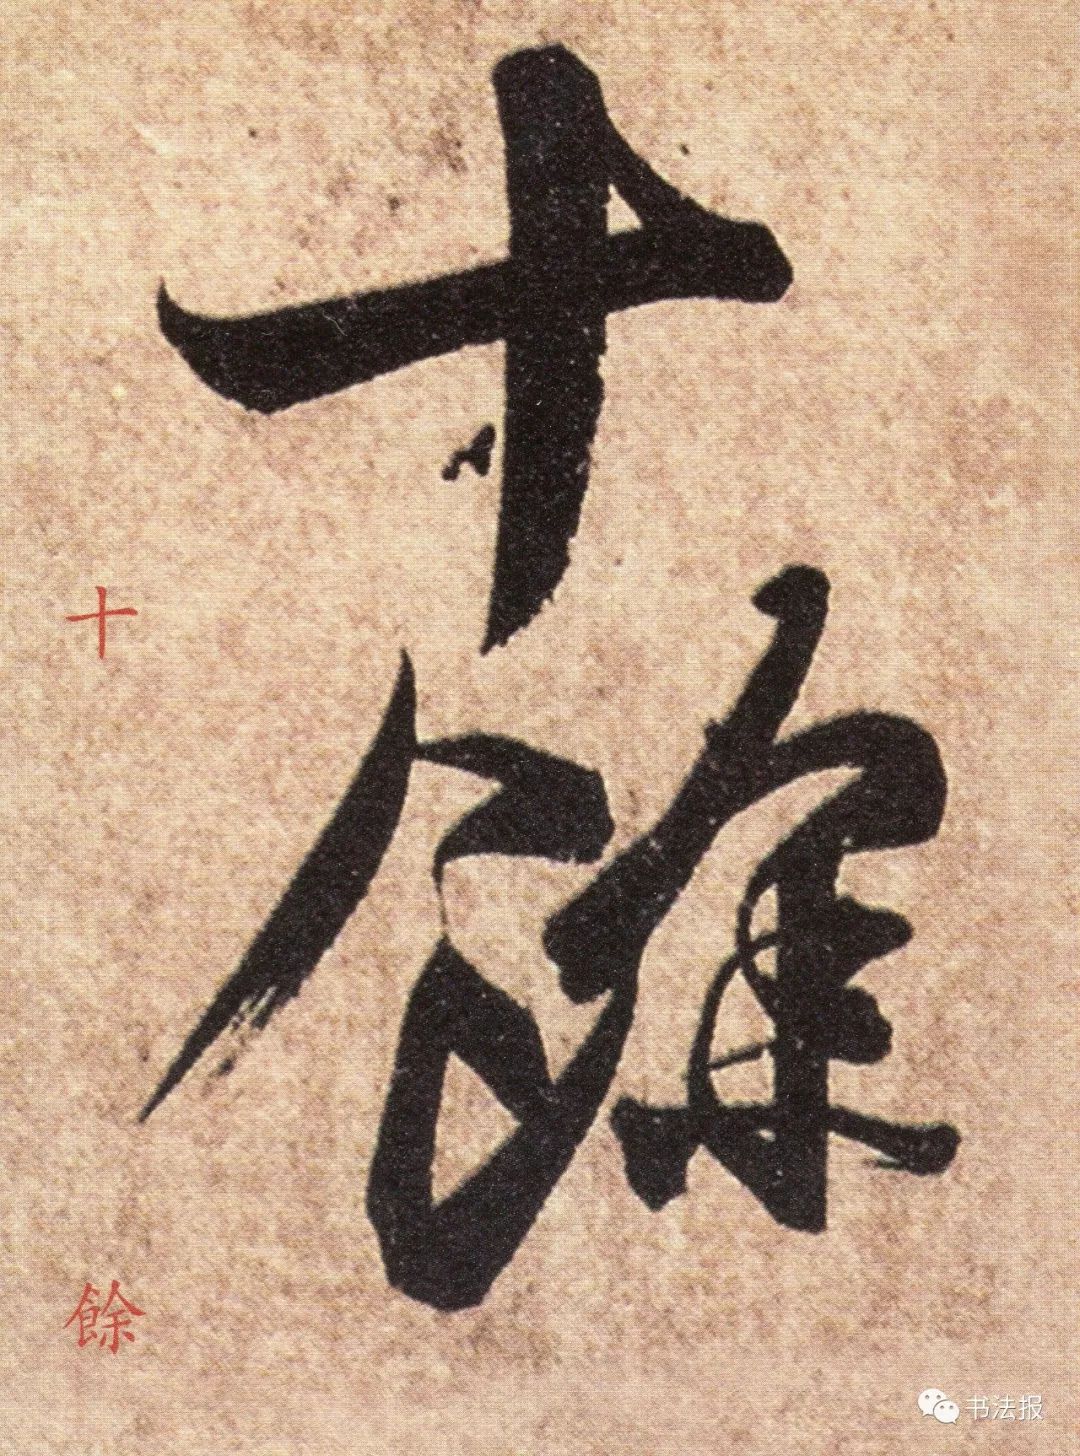 十
餘
十
餘
书法报